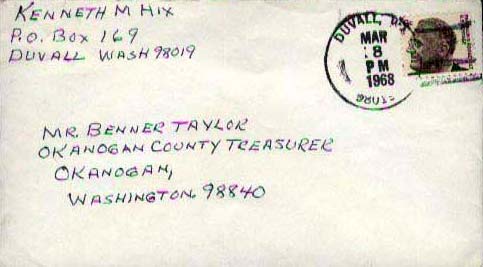 KENNETH M HIX
P.O. BOX 169
DUVALL WASH 98019
DUVALL,
MAR
8
PM
1968
MR. BENNER TAYLOR
OKANOGAN COUNTY TREASURER
OKANOGAN,
WASHINGTON 98840